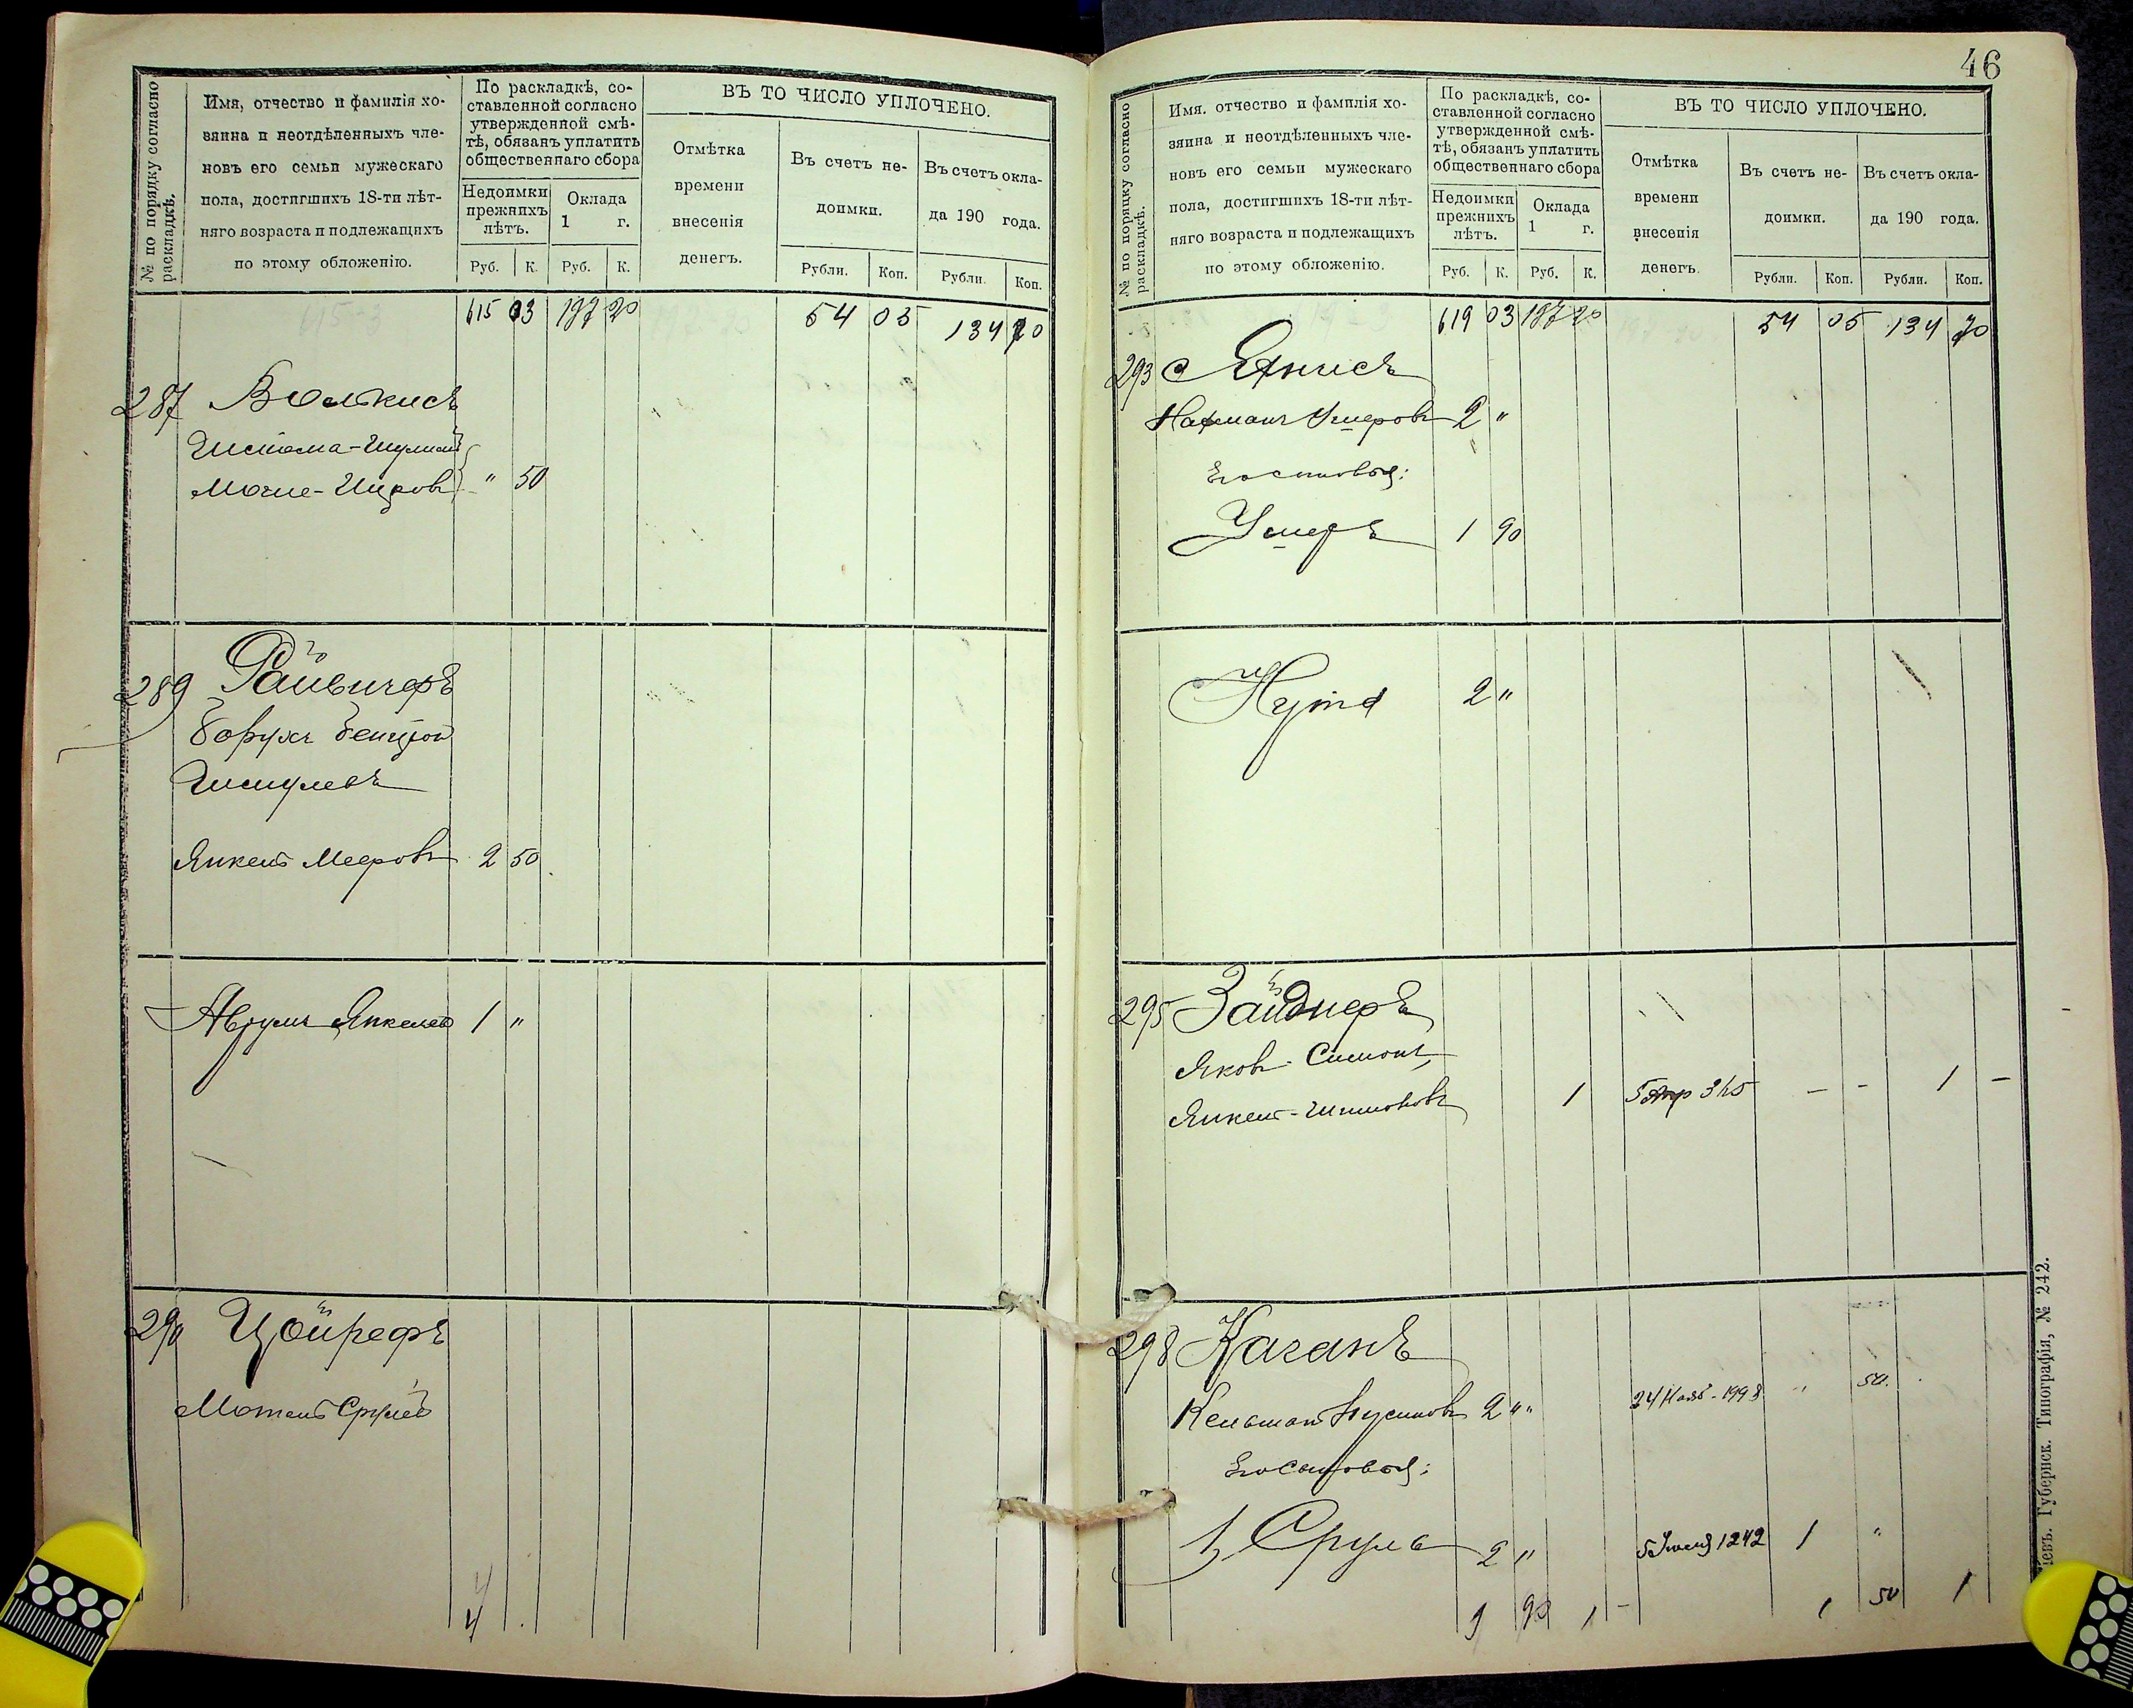 № по порядку согласно раскладкѣ.
Имя, отчество и фамилія хо-
зяина и неотдѣленныхъ чле-
новъ его семьи мужескаго
пола, достигшихъ 18-ти лѣт-
няго возраста и подлежащихъ
по этому обложенію.
По раскладкѣ, со-
ставленной согласно
утвержденной смѣ-
тѣ, обязанъ уплатить
общественнаго сбора
Недоимки
прежнихъ
лѣтъ.
Оклада
1 г.
Руб. К. Руб. К.
ВЪ ТО ЧИСЛО УПЛОЧЕНО.
Отмѣтка
времени
внесенія
денегъ.
Въ счетъ не-
доимки.
Въ счетъ окла-
да 190 года.
Рубли. Коп. Рубли. Коп.
615 03 197 20 54 05 134 70
287
" 50
289 Файвичеръ
Борухъ Бенціон
Янкель Мееровъ 2 50
Аврумъ Янкелев 1 "
290 Цойрефъ
Мотель Срулев
4
46
№ по порядку согласно раскладкѣ.
Имя, отчество и фамилія хо-
зяина и неотдѣленныхъ чле-
новъ его семьи мужескаго
пола, достигшихъ 18-ти лѣт-
няго возраста и подлежащихъ
по этому обложенію.
По раскладкѣ, со-
ставленной согласно
утвержденной смѣ-
тѣ, обязанъ уплатить
общественнаго сбора
Недоимки
прежнихъ
лѣтъ.
Оклада
1 г.
Руб. К. Руб. К.
ВЪ ТО ЧИСЛО УПЛОЧЕНО.
Отмѣтка
времени
внесенія
денегъ.
Въ счетъ не-
доимки.
Въ счетъ окла-
да 190 года.
Рубли. Коп. Рубли. Коп.
619 03 197 20 54 05 134 70
293
Нахманъ Умеровъ 2 "
Его сыновья:
Умеръ 1 90
Нута 2 "
295 Зайднеръ
Яковъ-Симонъ,
Янкель-Шимоновъ 1 5 Апр 345 — — 1 —
298 Каганъ
Нусиновъ 2 " 24 Нояб. 1998 " 50
Его сыновья:
1, Сруль 2 " 5 Июля 1242 1 "
9 90 1 — 1 50 1
Губернск. Типографія, № 242.